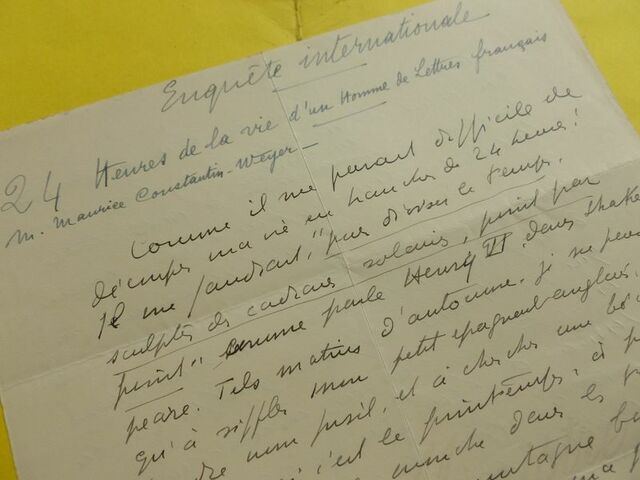 Enquête internationale
24 Heures de la vie d'un Homme de Lettres français
M. Maurice Constantin-Weyer -
Comme il me parait difficile de
découper ma vie en tranches de 24 heures!
Il me faudrait, "pour diviser le temps,
sculpter des cadrans solaires, point par
point" comme parle Henry VI dans Shakes
peare. Tels matins d'automne, je ne pense
qu'à siffler mon petit épagneul-anglais,
mon fusil, et à chercher une bé
c'est le printemps, à p
dans les
montagne